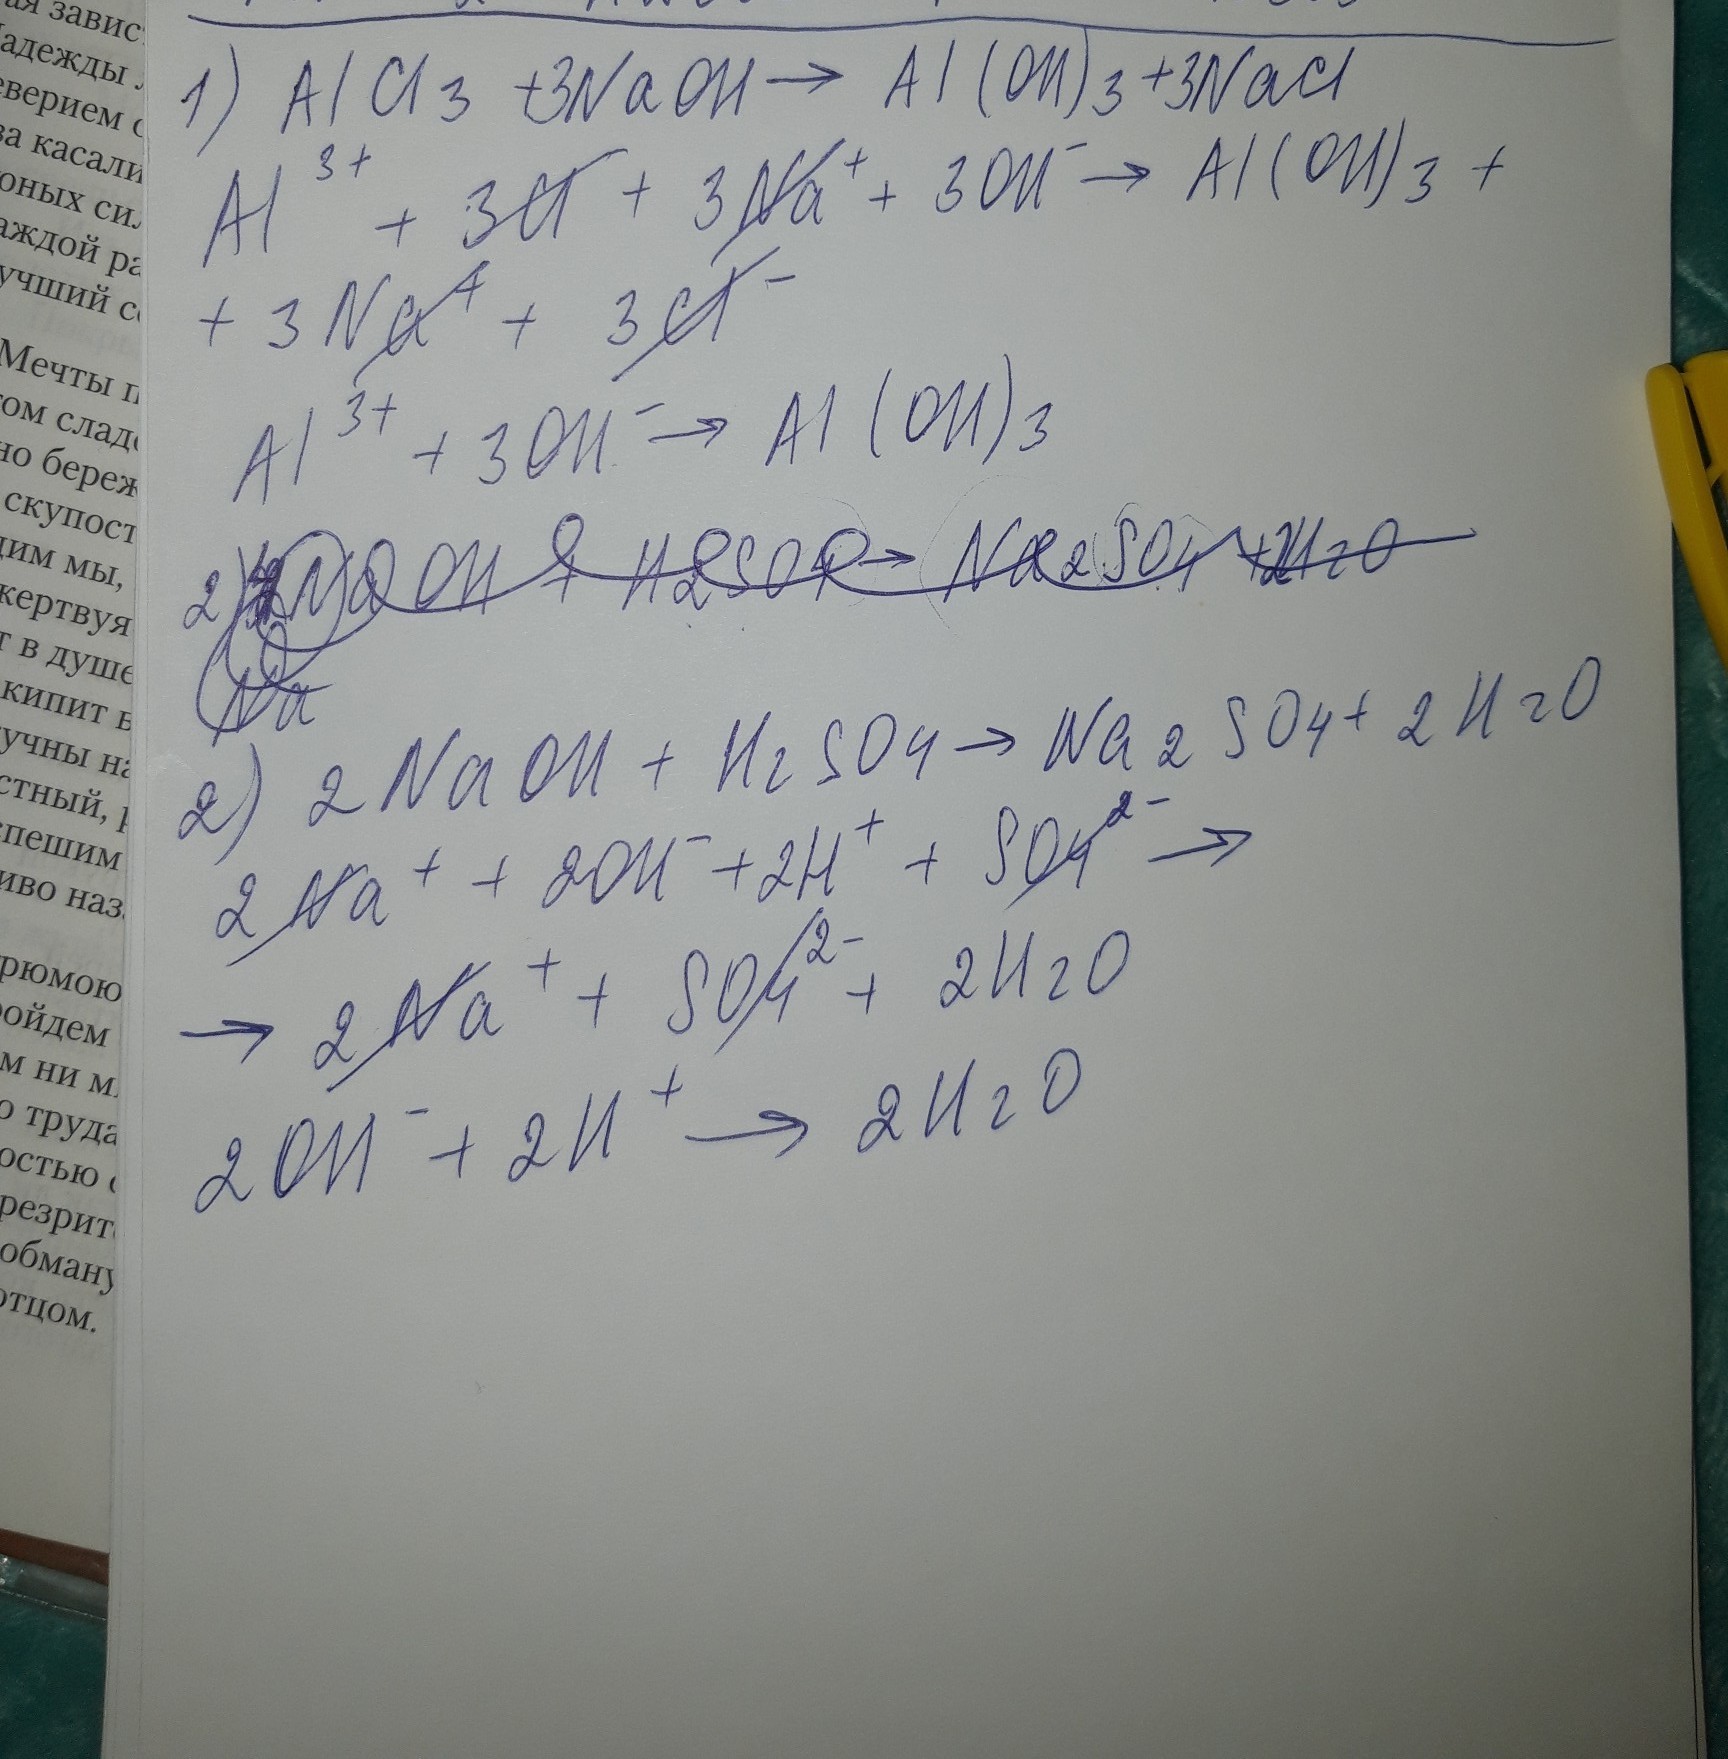 ая завис
Надежды
еверием с
ва касали
юных сил
аждой ра
учший с
Мечты п
том слад
но береж
скупост
дим мы,
жертвуя
т в душе
кипит в
учны на
стный,
спешим
иво наз
рюмою
ройдем
м ни м
о труда
остью с
резрит
обману
отцом.
1) AlCl3 +3NaOH → Al(OH)3+3NaCl
Al3+ + 3Cl + 3Na+ + 3OH- → Al(OH)3 +
+ 3Na+ + 3Cl-
Al3+ + 3OH- → Al(OH)3
2) NaOH + H2SO4 → Na2SO4 +2H2O
Na
2) 2NaOH + H2SO4 → Na2SO4 + 2H2O
2Na+ + 2OH- +2H+ + SO42- →
→ 2Na+ + SO42- + 2H2O
2OH- + 2H+ → 2H2O